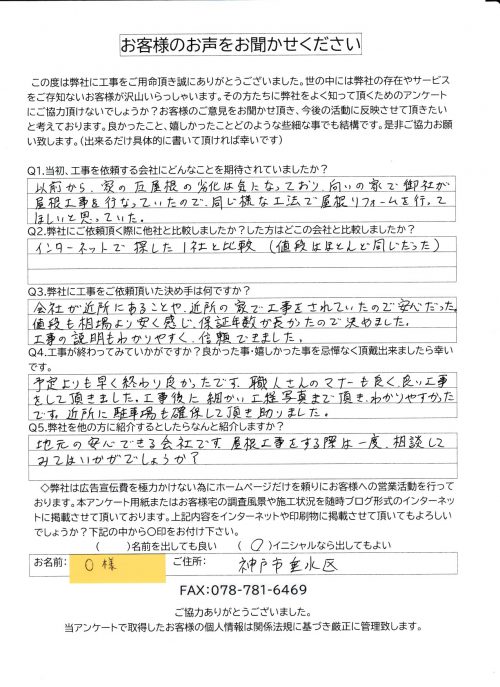 お客様のお声をお聞かせください
この度は弊社に工事をご用命頂き誠にありがとうございました。世の中には弊社の存在やサービス
をご存知ないお客様が沢山いらっしゃいます。その方たちに弊社をよく知って頂くためのアンケート
にご協力頂けないでしょうか？お客様のご意見をお聞かせ頂き、今後の活動に反映させて頂きたい
と考えております。良かったこと、嬉しかったことどのような些細な事でも結構です。是非ご協力お願
い致します。(出来るだけ具体的に書いて頂ければ幸いです)
Q1.当初、工事を依頼する会社にどんなことを期待されていましたか？
以前から、家の瓦屋根の劣化は気になっており、向いの家で御社が
屋根工事を行なっていたので、同じ様な工法で屋根リフォームを行って
ほしいと思っていた。
Q2.弊社にご依頼頂く際に他社と比較しましたか？した方はどこの会社と比較しましたか？
インターネットで探した1社と比較（値段はほとんど同じだった）
Q3.弊社に工事をご依頼頂いた決め手は何ですか？
会社が近所にあることや、近所の家で工事をされていたので安心だった。
値段も相場より安く感じ、保証年数が長かったので決めました。
工事の説明もわかりやすく、信頼できました。
Q4.工事が終わってみていかがですか？良かった事・嬉しかった事を忌憚なく頂戴出来ましたら幸い
です。
予定よりも早く終わり良かったです。職人さんのマナーも良く、良い工事
をして頂きました。工事後に細かい工程写真まで頂き、わかりやすかった
です。近所に駐車場も確保して頂き助りました。
Q5.弊社を他の方に紹介するとしたらなんと紹介しますか？
地元の安心できる会社です。屋根工事をする際は一度、相談して
みてはいかがでしょうか？
◇弊社は広告宣伝費を極力かけない為にホームページだけを頼りにお客様への営業活動を行って
おります。本アンケート用紙またはお客様宅の調査風景や施工状況を随時ブログ形式のインターネッ
トに掲載させて頂いております。上記内容をインターネットや印刷物に掲載させて頂いてもよろしい
でしょうか？下記の中から〇印をお付け下さい。
(　)名前を出しても良い　(〇)イニシャルなら出してもよい
お名前：　O様　ご住所：　神戸市垂水区
FAX:078-781-6469
ご協力ありがとうございました。
当アンケートで取得したお客様の個人情報は関係法規に基づき厳正に管理致します。